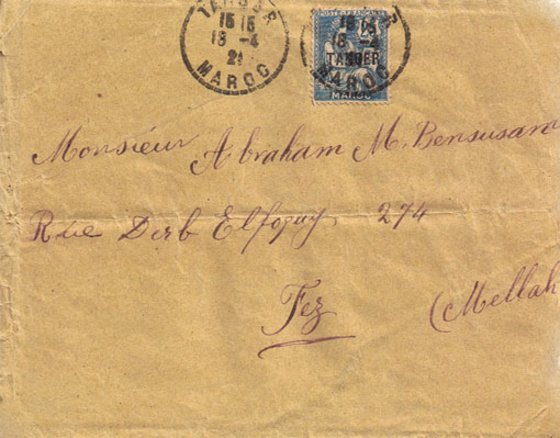 TANGER
15 15
18 -4
21
MAROC
POSTE FRANÇAISE
25
18
18 -4
TANGER
MAROC
MAROC
Monsieur Abraham M. Bensusan
Rue Derb Elfoquy 274
Fez
(Mellah